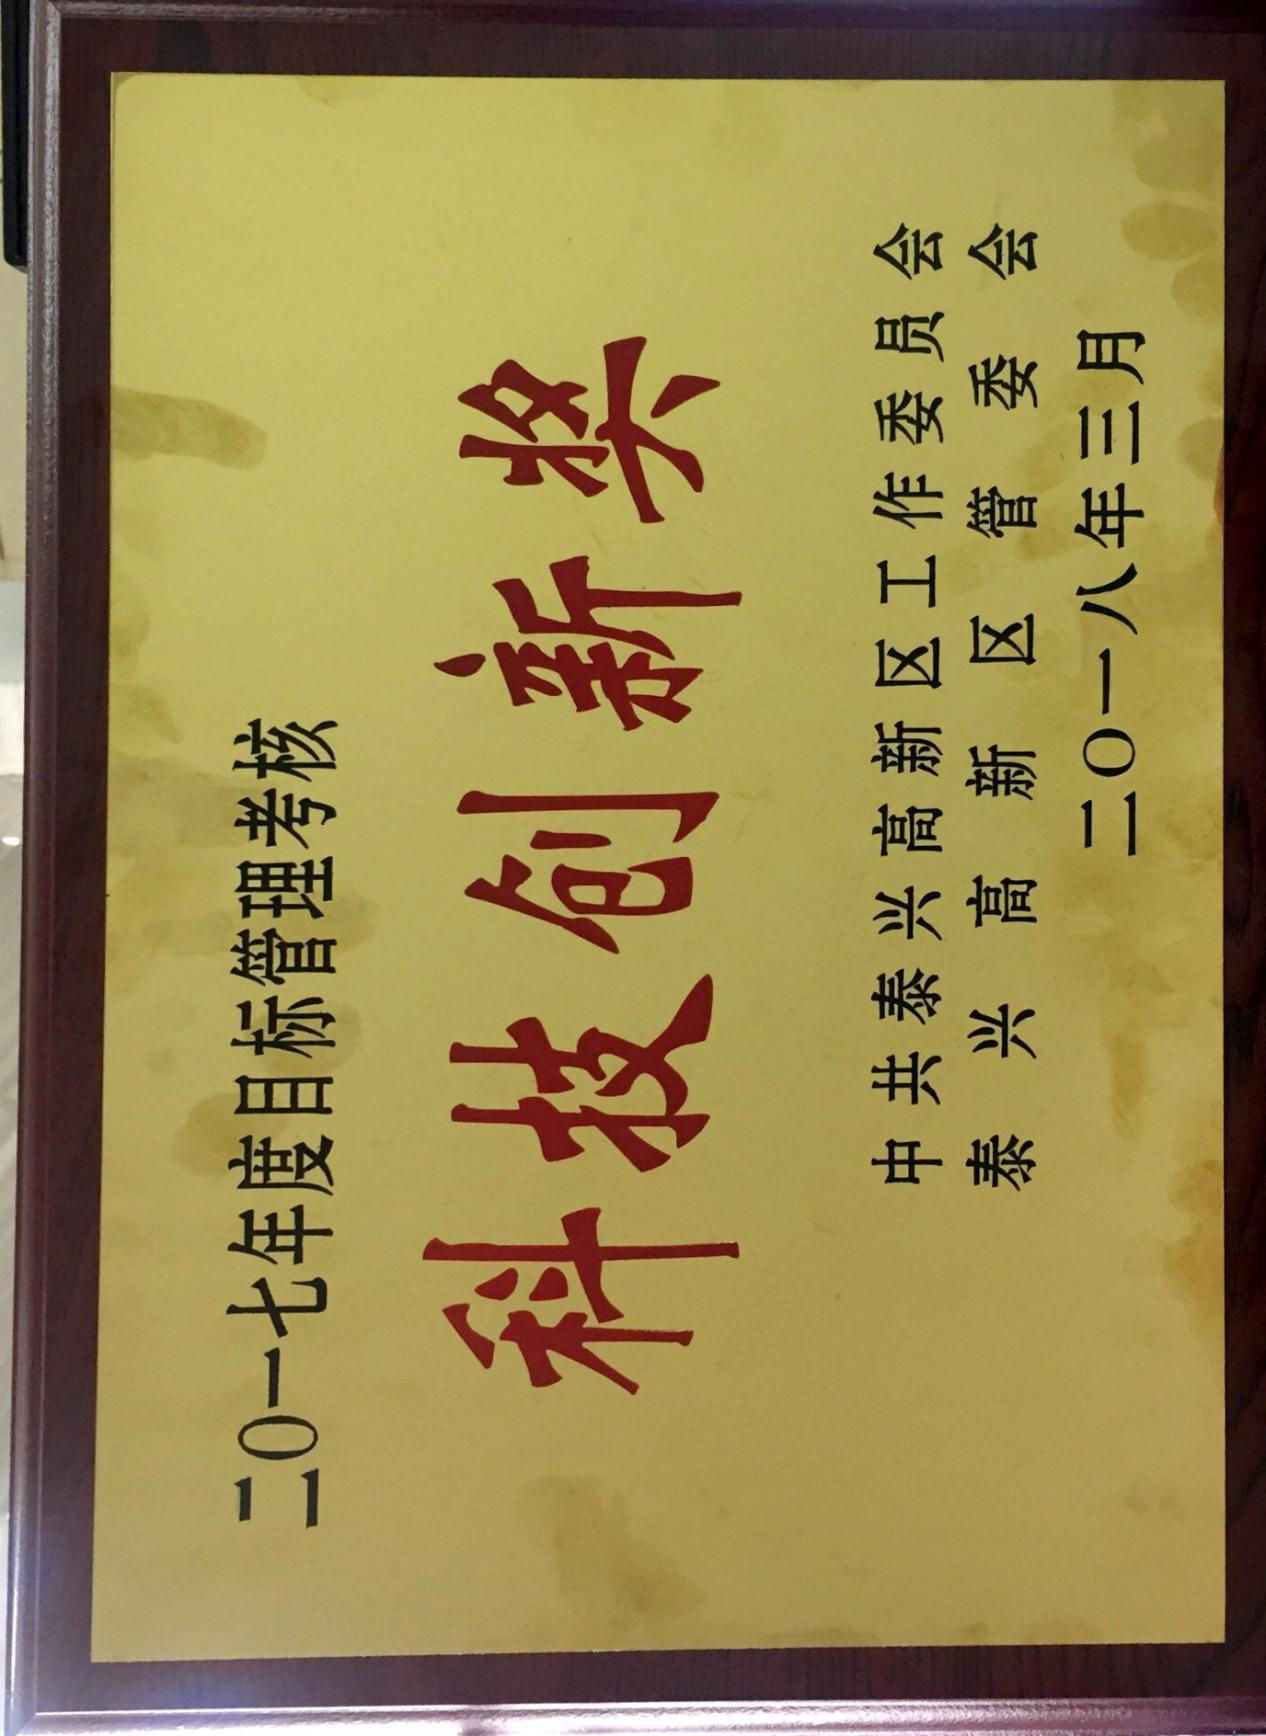 二〇一七年度目标管理考核
科技创新奖
中共泰兴高新区工作委员会
泰兴高新区管委会
二〇一八年三月